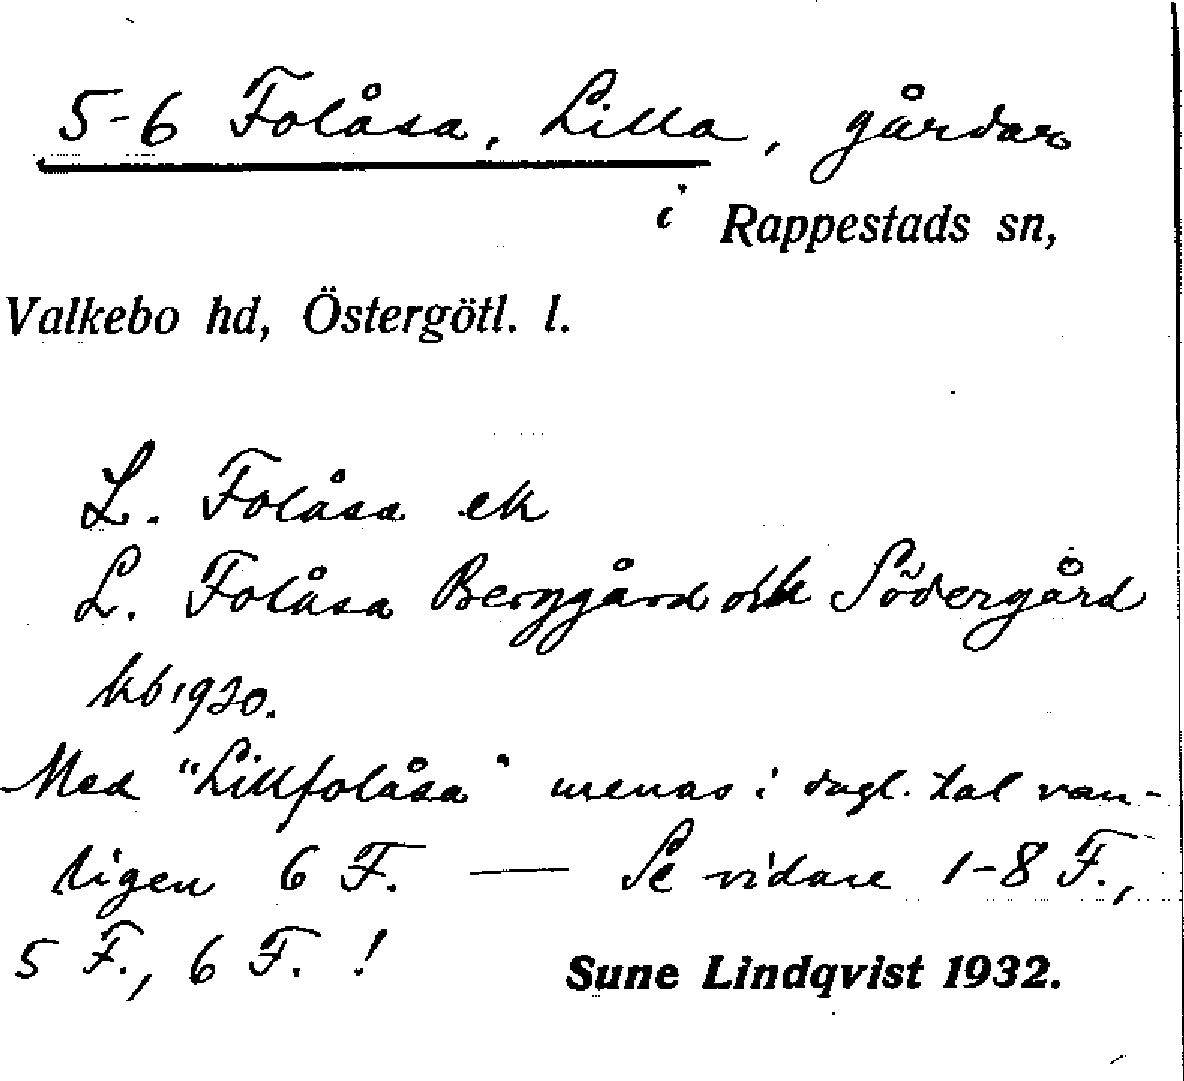 5-6 Folåsa, Lilla, gårdar
i Rappestads sn,
Valkebo hd, Östergötl. l.
L. Folåsa ek
L. Folåsa Berggård och Södergård
kb 1930.
Med "Lillfolåsa" menas i dagl. tal van-
ligen 6 F. — Se vidare 1-8 F.,
5 F., 6 F. !
Sune Lindqvist 1932.